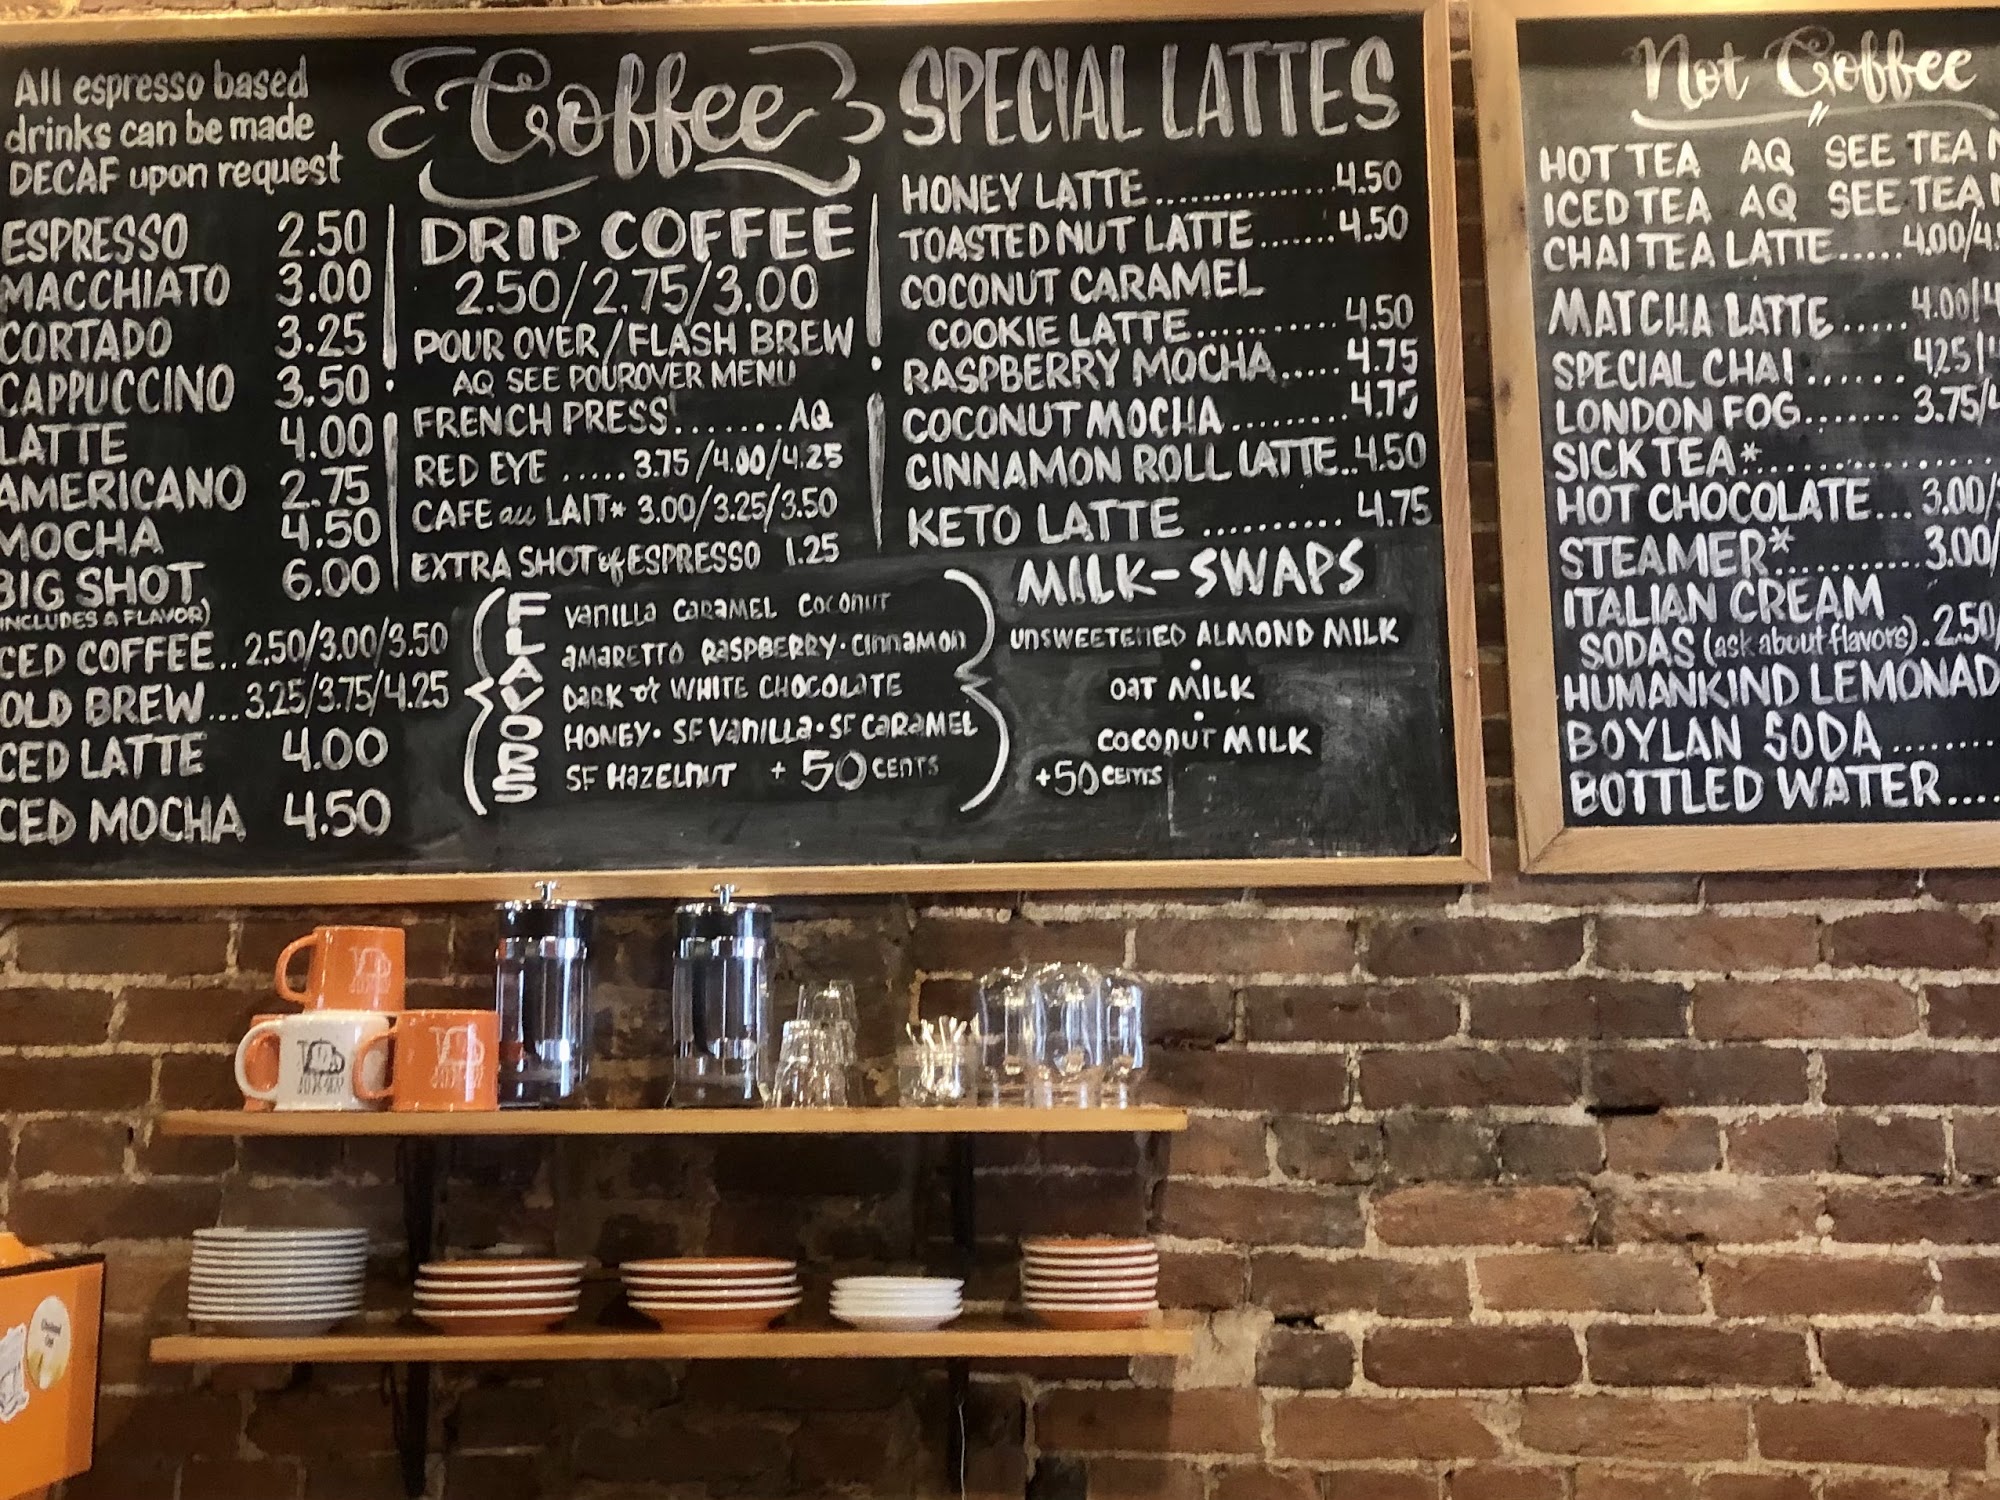 All espresso based
drinks can be made
DECAF upon request
ESPRESSO 2.50
MACCHIATO 3.00
CORTADO 3.25
CAPPUCCINO 3.50
LATTE 4.00
AMERICANO 2.75
MOCHA 4.50
BIG SHOT 6.00
INCLUDES A FLAVOR)
CED COFFEE.. 2.50/3.00/3.50
OLD BREW... 3.25/3.75/4.25
CED LATTE 4.00
CED MOCHA 4.50
Coffee
DRIP COFFEE
2.50/2.75/3.00
POUR OVER/FLASH BREW
AQ SEE POUROVER MENU
FRENCH PRESS.......AQ
RED EYE ..... 3.75/4.00/4.25
CAFE au LAIT* 3.00/3.25/3.50
EXTRA SHOT of ESPRESSO 1.25
FLAVORS
VANILLA CARAMEL COCONUT
AMARETTO RASPBERRY · CINNAMON
DARK or WHITE CHOCOLATE
HONEY · SF VANILLA · SF CARAMEL
SF HAZELNUT + 50 CENTS
SPECIAL LATTES
HONEY LATTE..............4.50
TOASTED NUT LATTE.......4.50
COCONUT CARAMEL
COOKIE LATTE...........4.50
RASPBERRY MOCHA.....4.75
COCONUT MOCHA.........4.75
CINNAMON ROLL LATTE..4.50
KETO LATTE ..........4.75
MILK-SWAPS
UNSWEETENED ALMOND MILK
·
OAT MILK
·
COCONUT MILK
+50 CENTS
Not Coffee
HOT TEA AQ SEE TEA
ICED TEA AQ SEE TEA
CHAI TEA LATTE.....4.00/4.
MATCHA LATTE.....4.00/4
SPECIAL CHAI......4.25/
LONDON FOG.......3.75/4
SICK TEA*
HOT CHOCOLATE...3.00/
STEAMER*...........3.00/
ITALIAN CREAM
SODAS (ask about flavors).2.50/
HUMANKIND LEMONAD
BOYLAN SODA........
BOTTLED WATER....